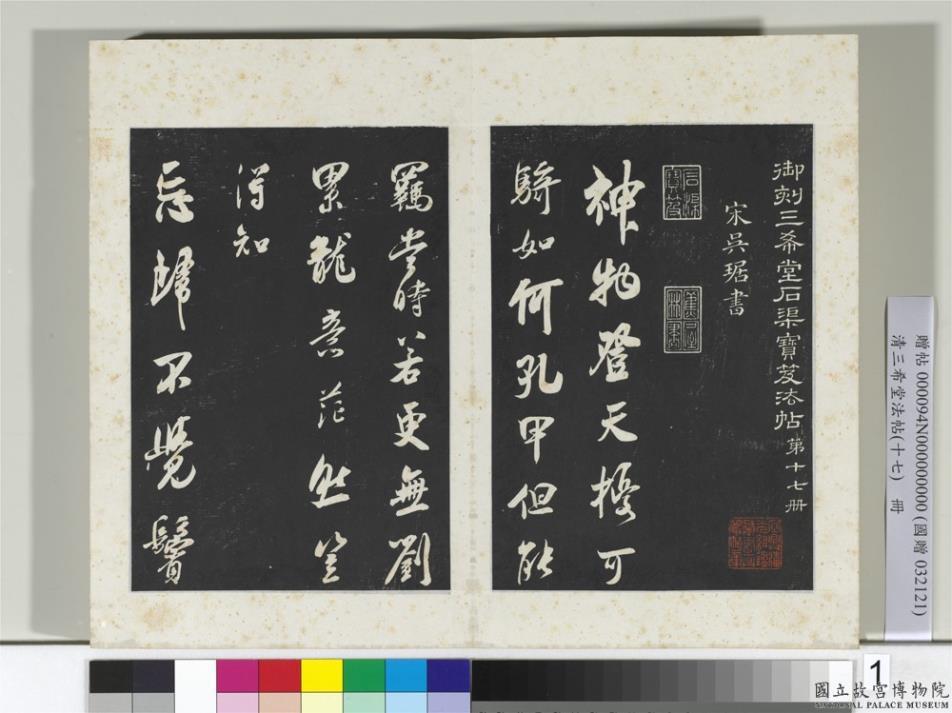 御刻三希堂石渠寶笈法帖 第十七册
宋吳琚書
石渠寶笈
神物登天擾可
騎如何孔甲但能
羈當時若更無劉
累龍意茫然豈
得知
忘歸不覺鬢
贈帖 000094N000000000 (國贈 032121)
清三希堂法帖(十七) 冊
1
國立故宮博物院
NATIONAL PALACE MUSEUM